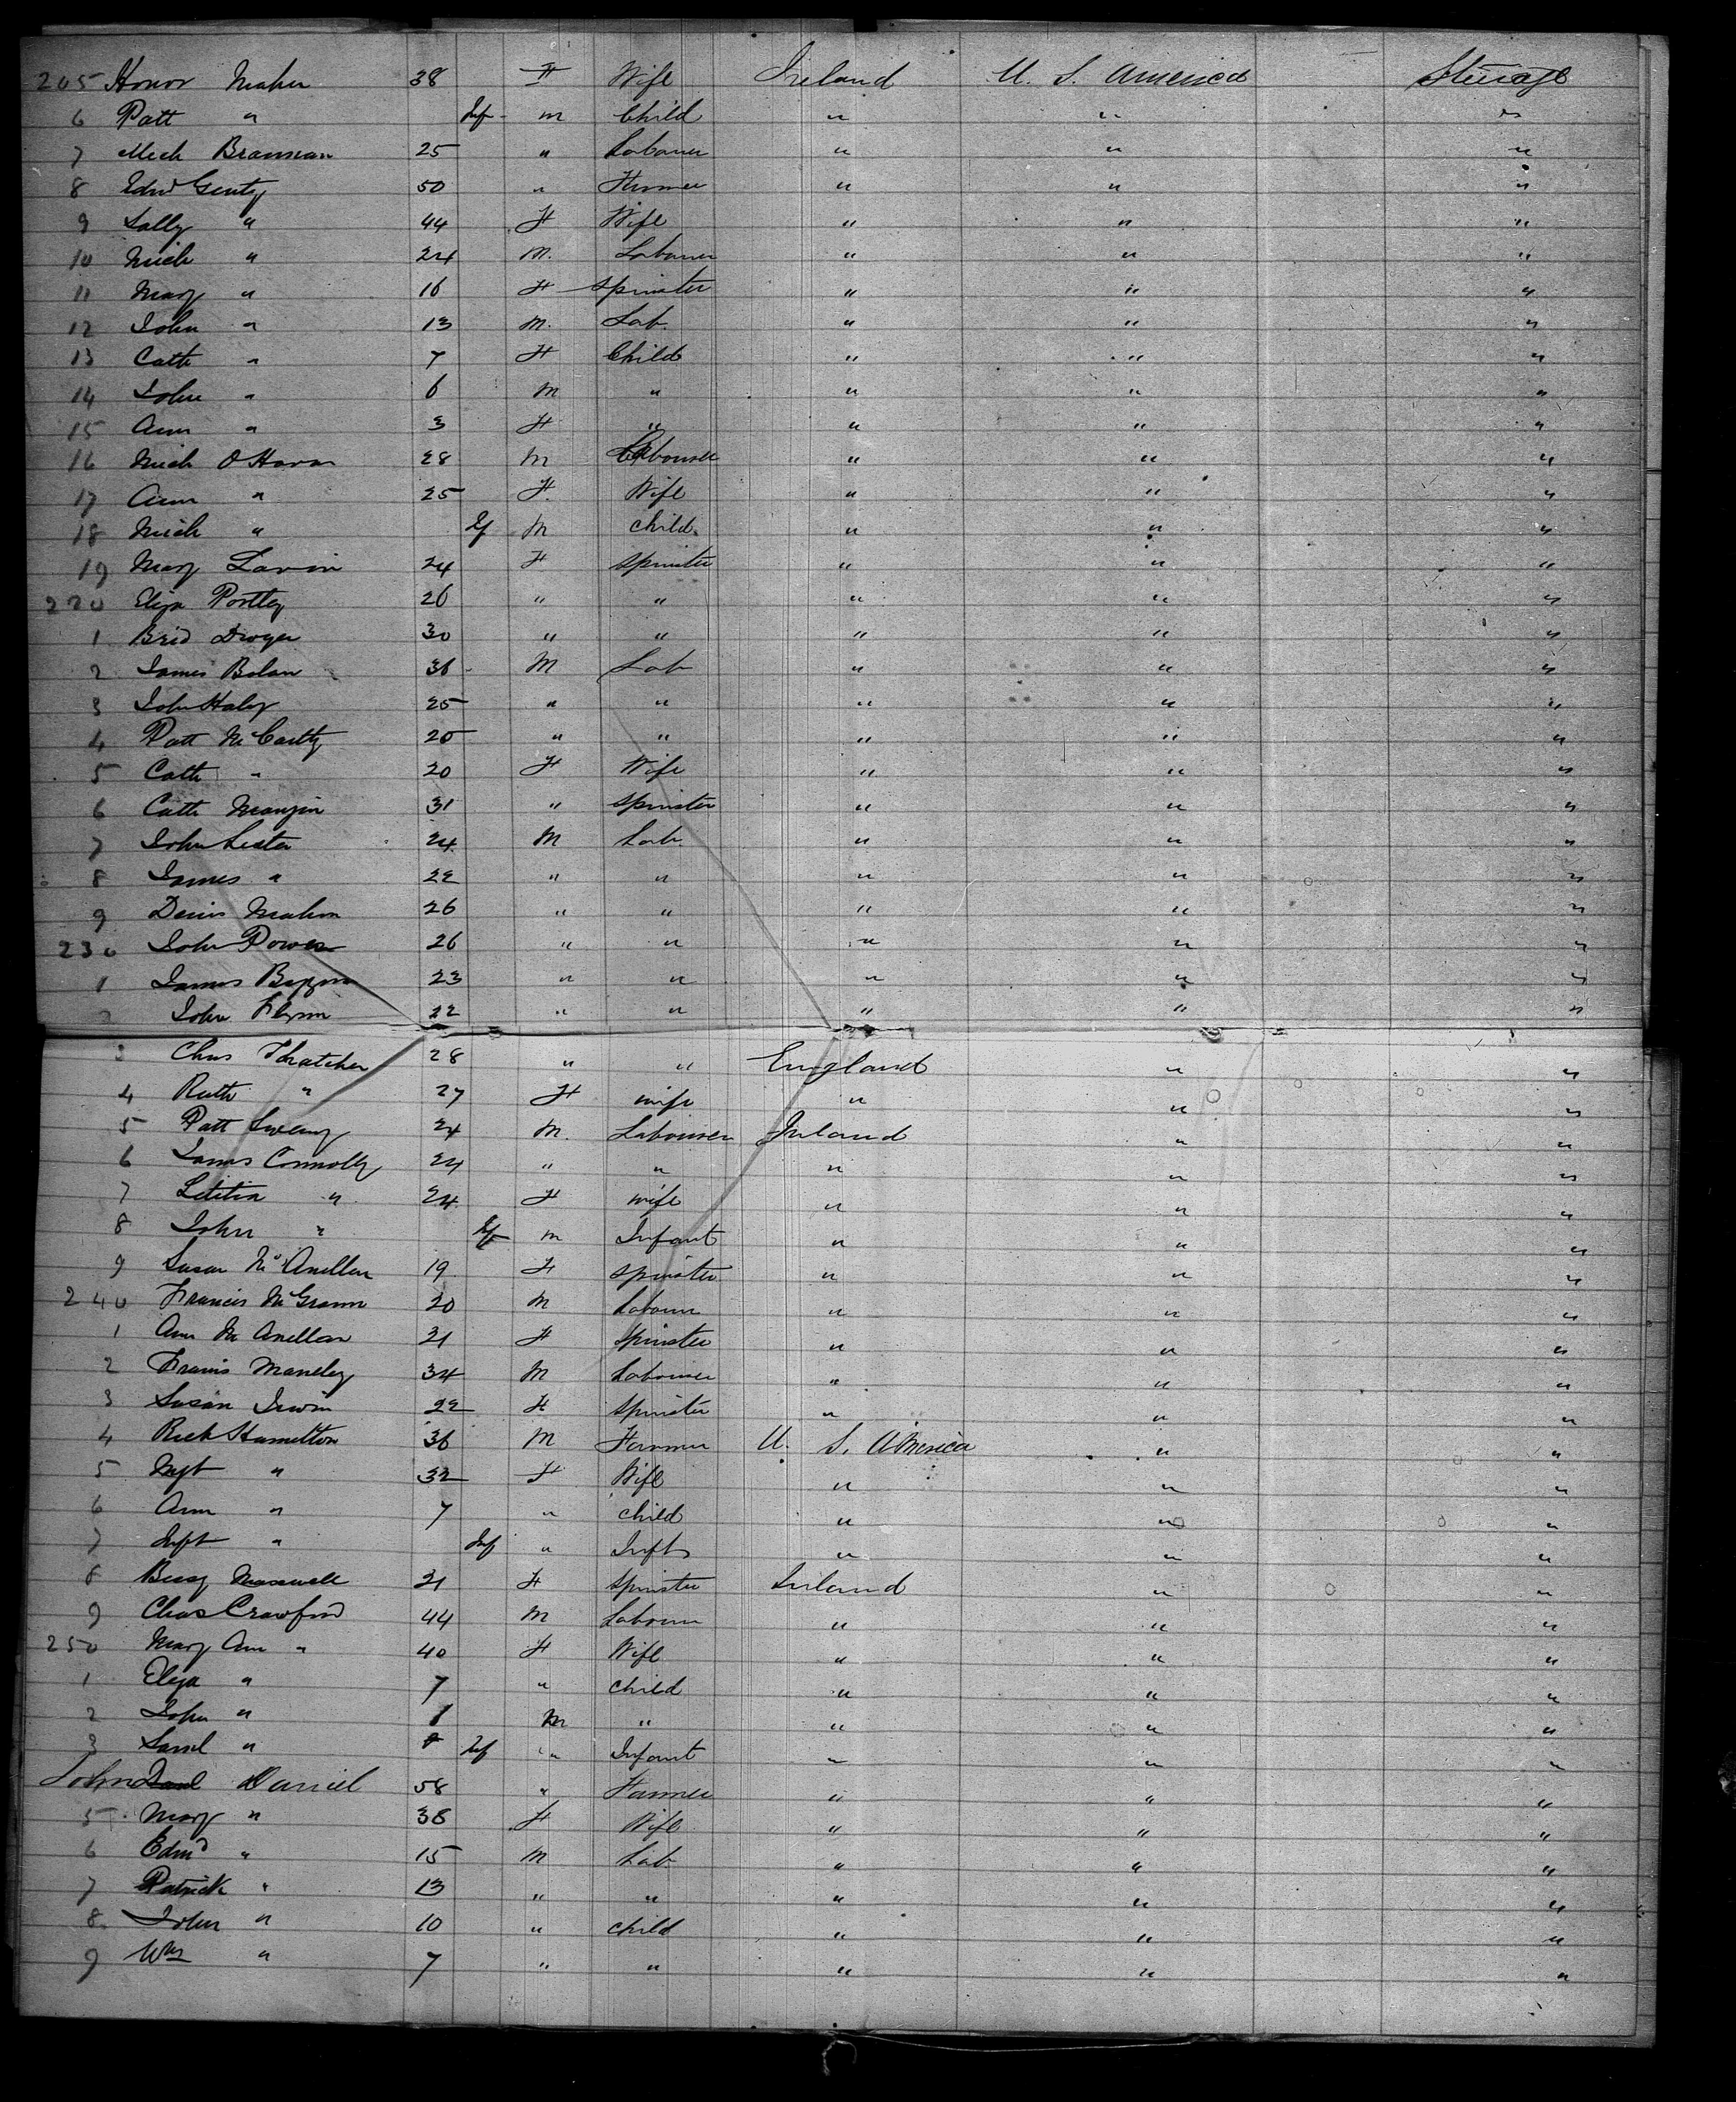 205 Honor Maher 38 F Wife Ireland U. S. America Steerage
6 Patt " Inf M Child " " "
7 Mich Brannan 25 " Labourer " " "
8 Edwd Genty 50 " Farmer " " "
9 Sally " 44 F Wife " " "
10 Mich " 24 M. Labourer " " "
11 Mary " 16 F Spinster " " "
12 John " 13 M. Lab. " " "
13 Cath " 7 F Child " " "
14 John " 6 M " " " "
15 Ann " 3 F " " " "
16 Mich O Hara 28 M Labourer " " "
17 Ann " 25 F. Wife " " "
18 Mich " If M Child " " "
19 Mary Lavin 24 F Spinster " " "
220 Eliza Portley 26 " " " " "
1 Brid Dwyer 30 " " " " "
2 James Bolan 36 M Lab " " "
3 John Haley 25 " " " " "
4 Patt McCarthy 25 " " " " "
5 Cath " 20 F Wife " " "
6 Cath Mangin 31 " Spinster " " "
7 John Lester 24 M Lab. " " "
8 James " 22 " " " " "
9 Denis Mahon 26 " " " " "
230 John Power 26 " " " " "
1 James 23 " " " " "
2 John Flynn 22 " " " " "
3 Chas Thatcher 28 " " England " "
4 Ruth " 27 F wife " " "
5 Patt Sweny 24 M. Labourer Ireland " "
6 James Connolly 24 " " " " "
7 Letitia " 24 F wife " " "
8 John " Inf M Infant " " "
9 Susan McAnellan 19 F Spinster " " "
240 Francis McGrann 20 M Labourer " " "
1 Ann McAnellan 21 F Spinster " " "
2 Francis Maneley 34 M Labourer " " "
3 Susan Irwin 22 F Spinster " " "
4 Rich Hamilton 36 M Farmer U. S. America " "
5 Mgt " 32 F Wife " " "
6 Ann " 7 " Child " " "
7 Inft " Inf " Inft " " "
8 Bessy Maxwell 21 F Spinster Ireland " "
9 Chas Crawford 44 M Labourer " " "
250 Mary Ann " 40 F Wife " " "
1 Eliza " 7 " Child " " "
2 John " 1 M " " " "
3 Saml " Inf " Infant " " "
John Daniel 58 " Farmer " " "
5 Mary " 38 F Wife " " "
6 Edmd " 15 M Lab " " "
7 Patrick " 13 " " " " "
8 John " 10 " child " " "
9 Wm " 7 " " " " "